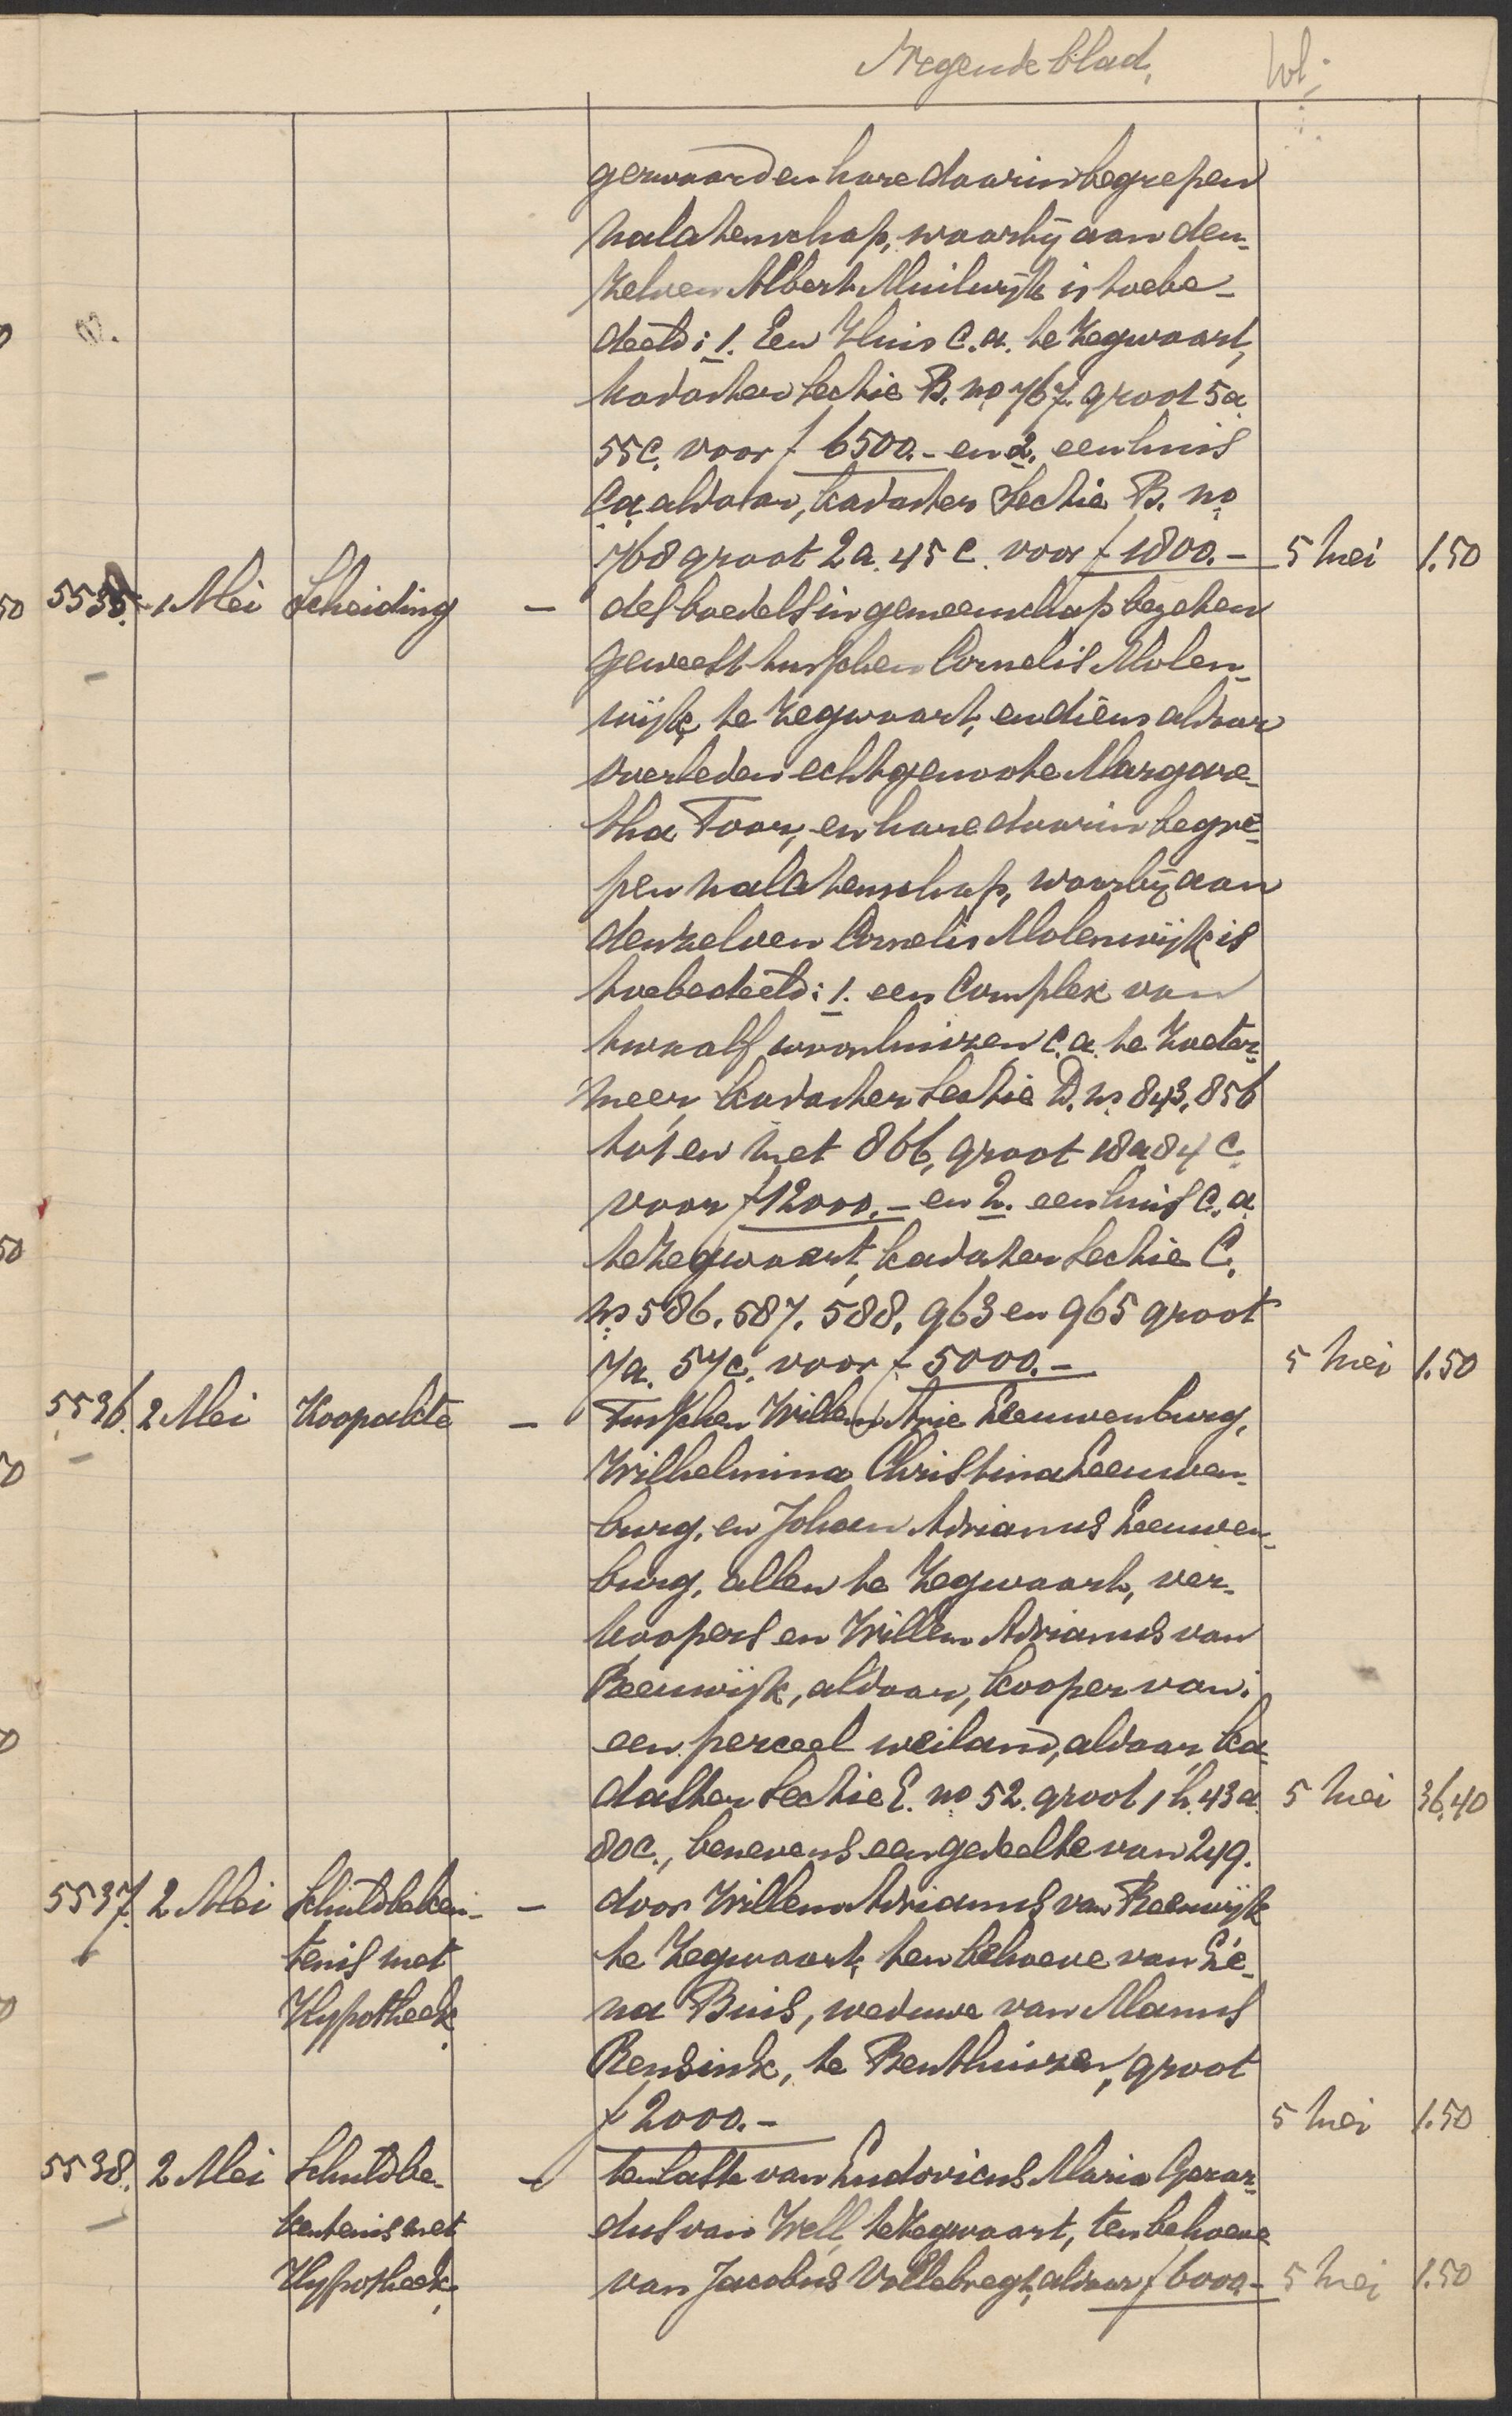 Negende blad.
gerwaard en hare daarin begrepen
nalatenschap, waarbij aan den-
zelven Albert Muilwijk is toebe-
deeld: 1. Een Huis c.a. te Zegwaart,
kadaster Sectie B. no 767. groot 5a
55c. voor f 6500.- en 2. een huis
c.a. aldaar, kadaster Sectie B. no
768 groot 2a. 45c. voor f 1800.- 5 Mei 1.50
5535. 1 Mei Scheiding - des boedels in gemeenschap bezeten
geweest tusschen Cornelis Molen-
wijk, te Zegwaart, en diens aldaar
overleden echtgenoote Margare-
tha Toor, en hare daarin begre-
pen nalatenschap, waarbij aan
denzelven Cornelis Molenwijk is
toebedeeld: 1. een Complex van
twaalf woonhuizen c.a. te Zoeter-
meer, kadaster Sectie D. no 843, 856
tot en met 866, groot 18a 84c.
voor f 12000.- en 2. een huis c.a.
te Zegwaart, kadaster Sectie C.
no 586. 587. 588. 963 en 965 groot
7a. 57c. voor f 5000.- 5 Mei 1.50
5536. 2 Mei Koopakte - Tusschen Willem Arie Leeuwenburg,
Wilhelmina Christina Leeuwen-
burg, en Johan Adrianus Leeuwen-
burg, allen te Zegwaart, ver-
koopers en Willem Adrianus van
Reeuwijk, aldaar, kooper van:
een perceel weiland, aldaar, ka-
daster Sectie E. no 52. groot 1 h. 43a. 5 Mei 36,40
80c., benevens een gedeelte van 249.
5537. 2 Mei Schuldbeken- - door Willem Adrianus van Reeuwijk
tenis met te Zegwaart, ten behoeve van Le-
Hypotheek. na Buis, weduwe van Manus
Rensink, te Benthuizen, groot
f 2000.- 5 Mei 1.50
5538. 2 Mei Schuldbe- - ten laste van Ludovicus Maria Gerar-
kentenis met dus van Well, te Zegwaart, ten behoeve
Hypotheek. van Jacobus Vollebregt, aldaar f 6000.- 5 Mei 1.50